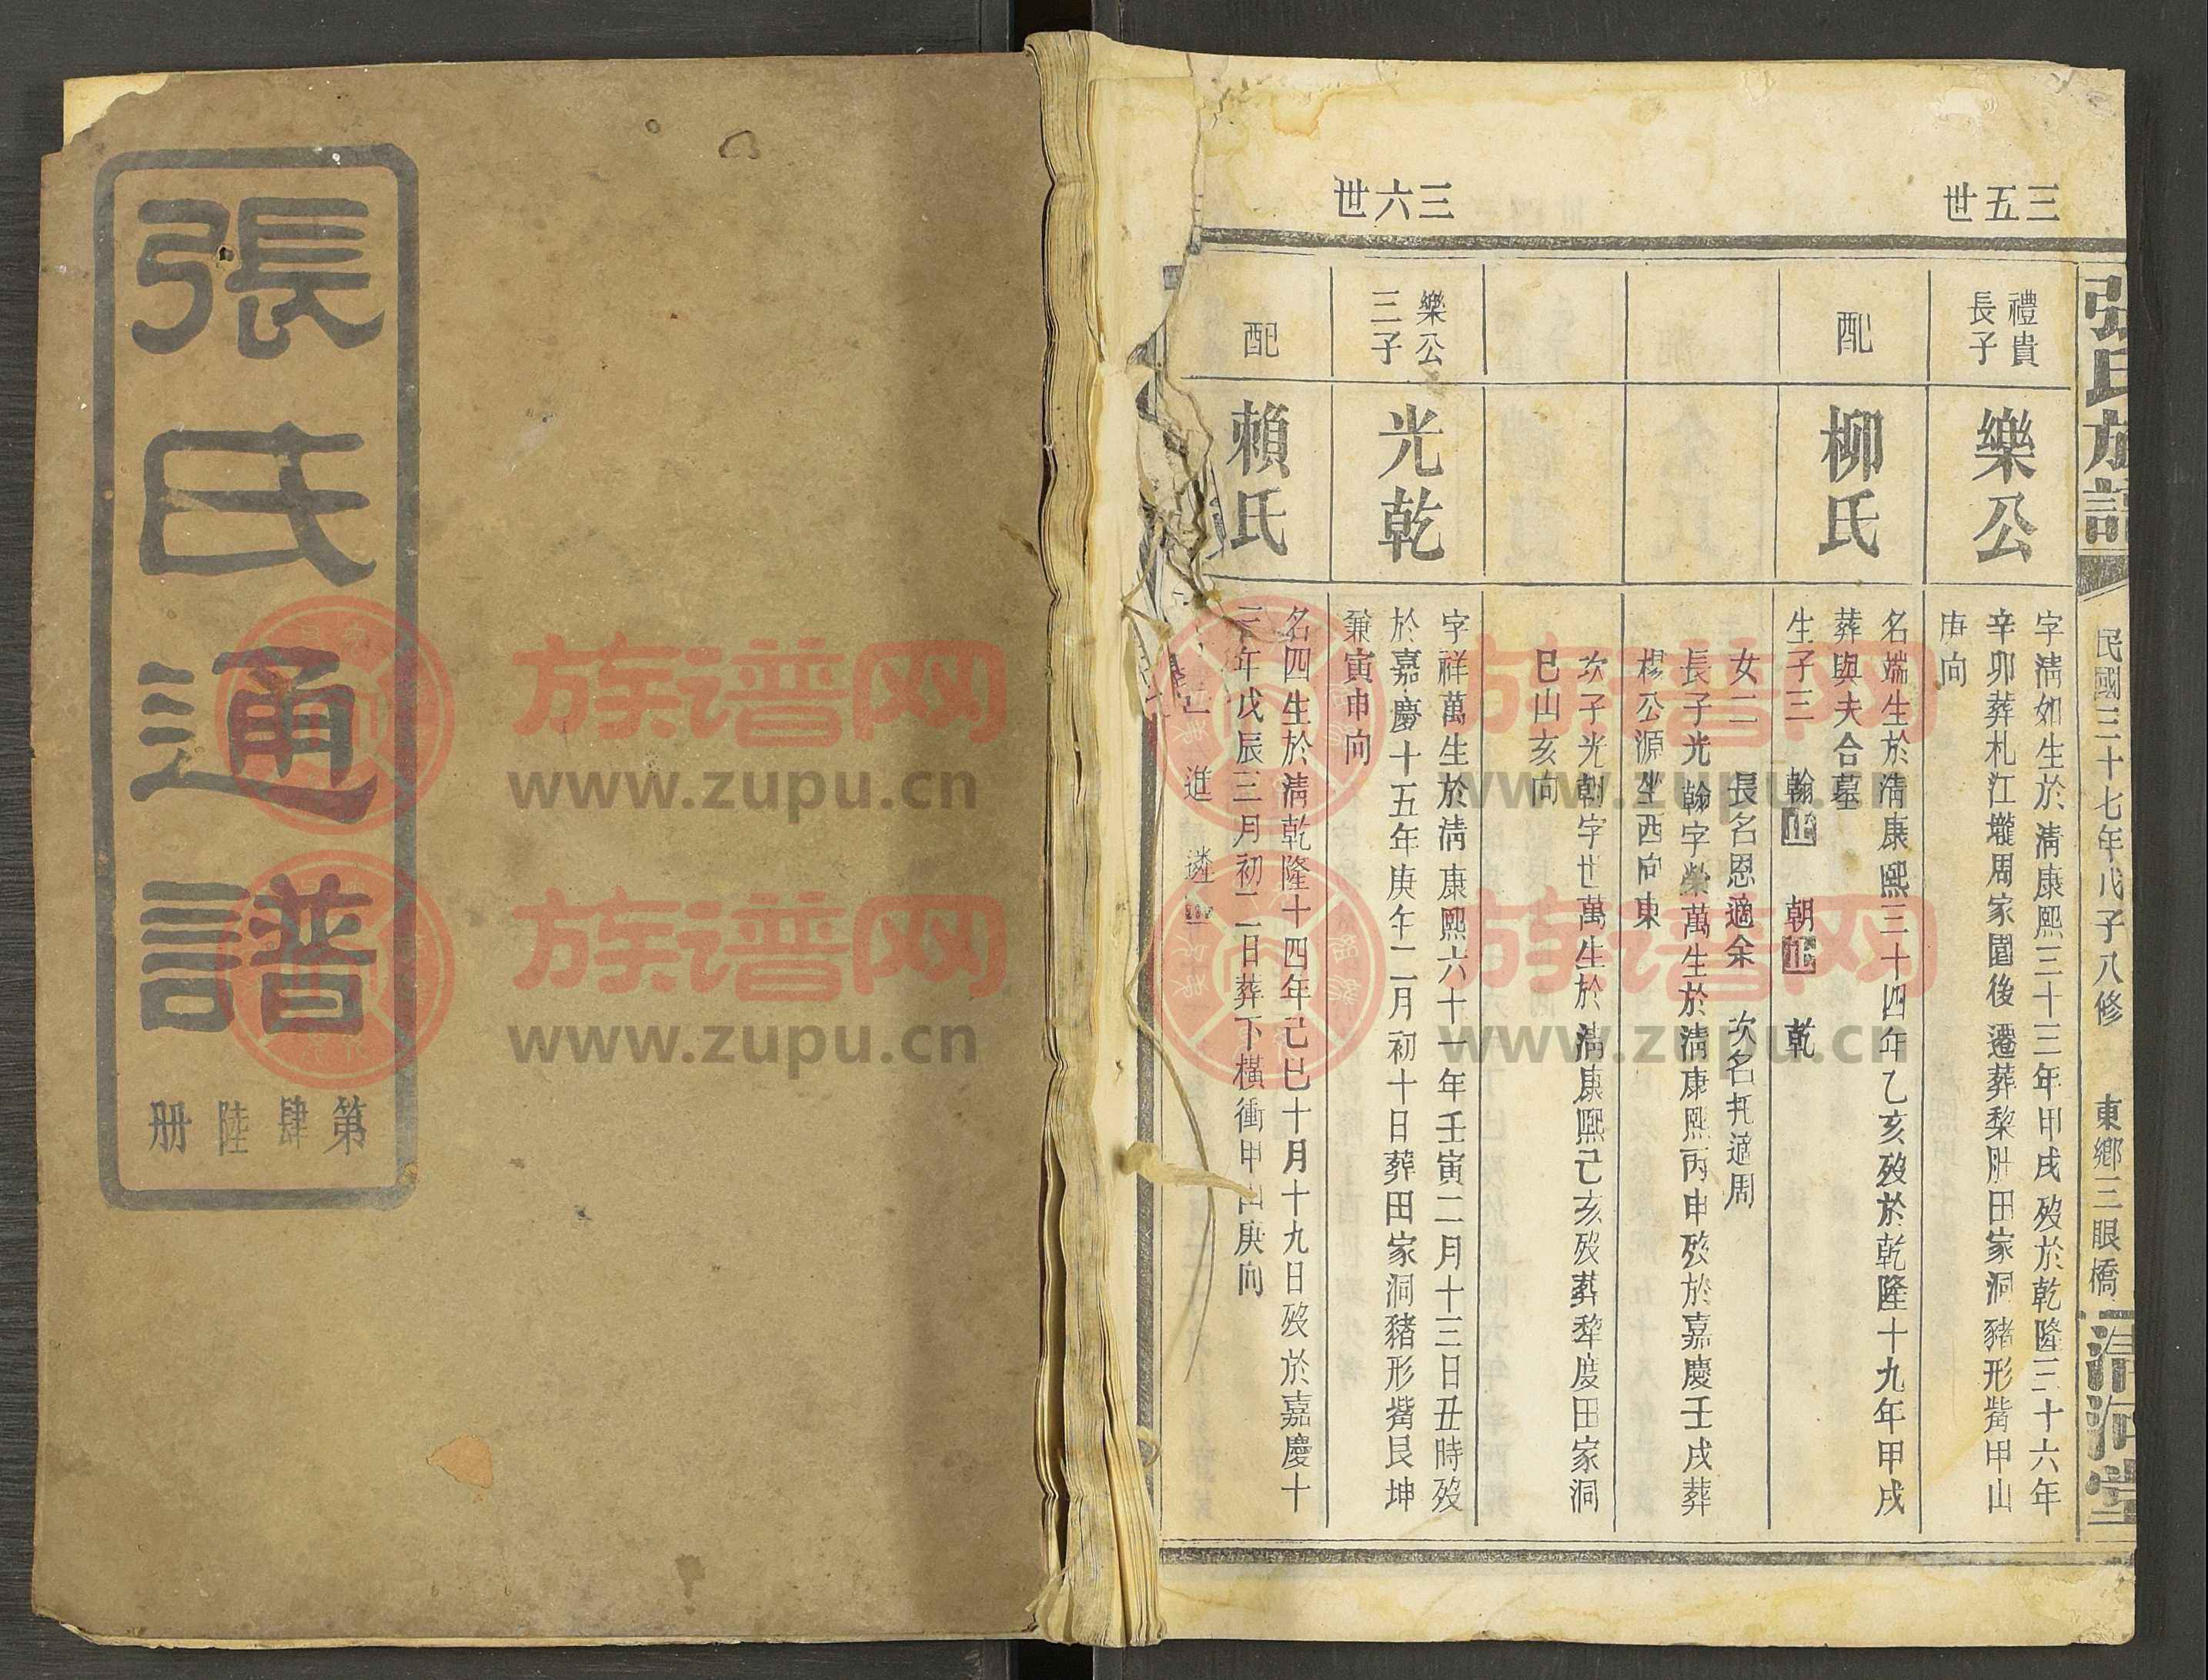 張氏通譜
第肆陸册
張氏族譜
民國三十七年戊子八修
東鄉三眼橋
清河堂
三五世
禮貴
長子
樂公
字淸如生於淸康熙三十三年甲戌歿於乾隆三十六年
辛卯葬札江壠周家園後遷葬犂壯田家洞豬形嘴甲山
庚向
配
柳氏
名端生於淸康熙三十四年乙亥歿於乾隆十九年甲戌
葬與夫合墓
生子三 翰正 朝正 乾
女二 長名恩適余 次名乳適周
長子光翰字榮萬生於淸康熙丙申歿於嘉慶壬戌葬
楊公源坐西向東
次子光朝字世萬生於淸康熙己亥歿葬犂度田家洞
巳山亥向
三六世
樂公
三子
光乾
字祥萬生於淸康熙六十一年壬寅二月十三日丑時歿
於嘉慶十五年庚午二月初十日葬田家洞豬形嘴艮坤
兼寅申向
配
賴氏
名四生於淸乾隆十四年己巳十月十九日歿於嘉慶十
三年戊辰三月初二日葬下橫衝甲山庚向
進 遴
族谱网
www.zupu.cn
族谱网
www.zupu.cn
族谱网
www.zupu.cn
族谱网
www.zupu.cn